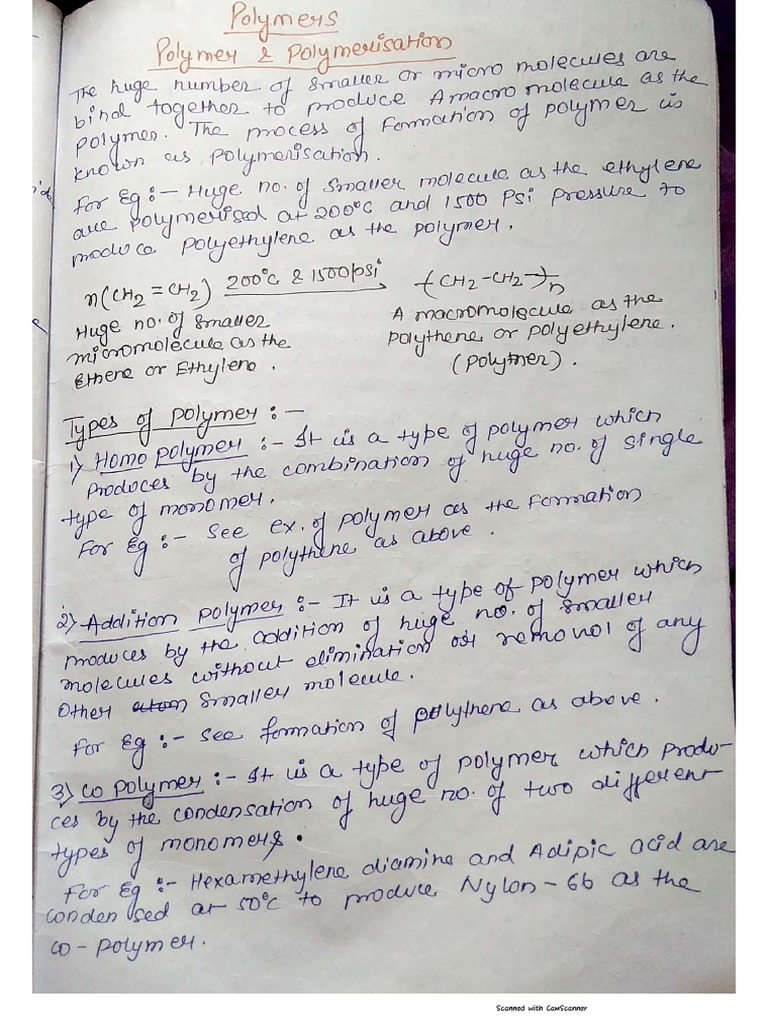 Polymers
Polymer & Polymerisation
The huge number of smaller or micro molecules are
bind together to produce A macro molecule as the
polymer. The process of formation of polymer is
known as polymerisation.
For Eg :- Huge no. of smaller molecule as the ethylene
are polymerised at 200°C and 1500 Psi pressure to
produce polyethylene as the polymer.
n(CH2=CH2) 200°C & 1500psi (CH2-CH2)n
Huge no. of smaller
micromolecule as the
Ethene or Ethylene.
A macromolecule as the
polythene or polyethylene.
(polymer).
Types of polymer :-
1) Homo polymer :- It is a type of polymer which
produces by the combination of huge no. of single
type of monomer.
For Eg :- See ex. of polymer as the formation
of polythene as above.
2) Addition polymer :- It is a type of polymer which
produces by the addition of huge no. of smaller
molecules without elimination or removol of any
other atom smaller molecule.
For Eg :- See formation of polythene as above.
3) Co polymer :- It is a type of polymer which produ-
ces by the condensation of huge no. of two different
types of monomers.
For Eg :- Hexamethylene diamine and Adipic acid are
conden sed at 50°C to produce Nylon-66 as the
co-polymer.
Scanned with CamScanner